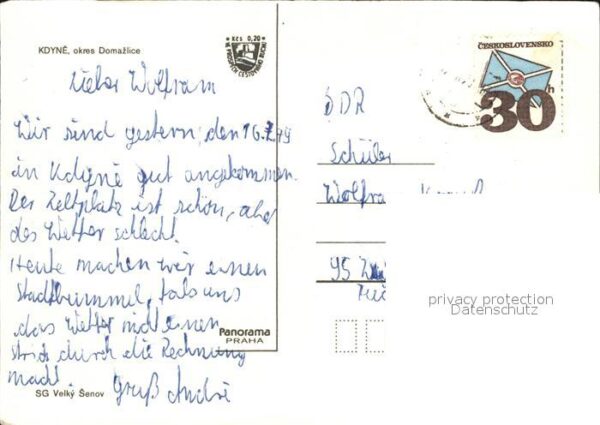 KDYNĚ, okres Domažlice
Kčs 0,20
Lieber Wolfram
Wir sind gestern, den 16.7.79
in Kdyně gut angekommen.
Der Zeltplatz ist schön, aber
das Wetter schlecht.
Heute machen wir einen
Stadtbummel, falls uns
das Wetter nicht einen
Strich durch die Rechnung
macht.
Gruß André
SG Velký Šenov
Panorama
PRAHA
ČESKOSLOVENSKO
30h
DDR
Schüler
Wolfram
95
privacy protection
Datenschutz